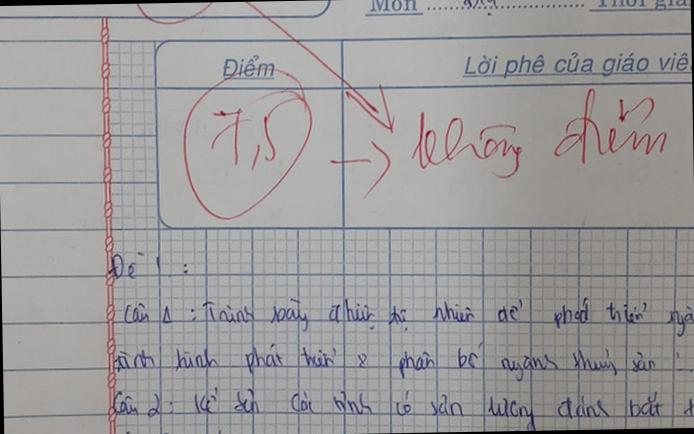 Môn Thời gia
Điểm Lời phê của giáo viê
7,5 → không điểm
Đề 1 :
Câu 1 : Trình bày điều kiện tự nhiên để phát triển ngà
tình hình phát triển & phân bố ngành thuỷ sản
Câu 2 : Kể tên các tỉnh có sản lượng đánh bắt